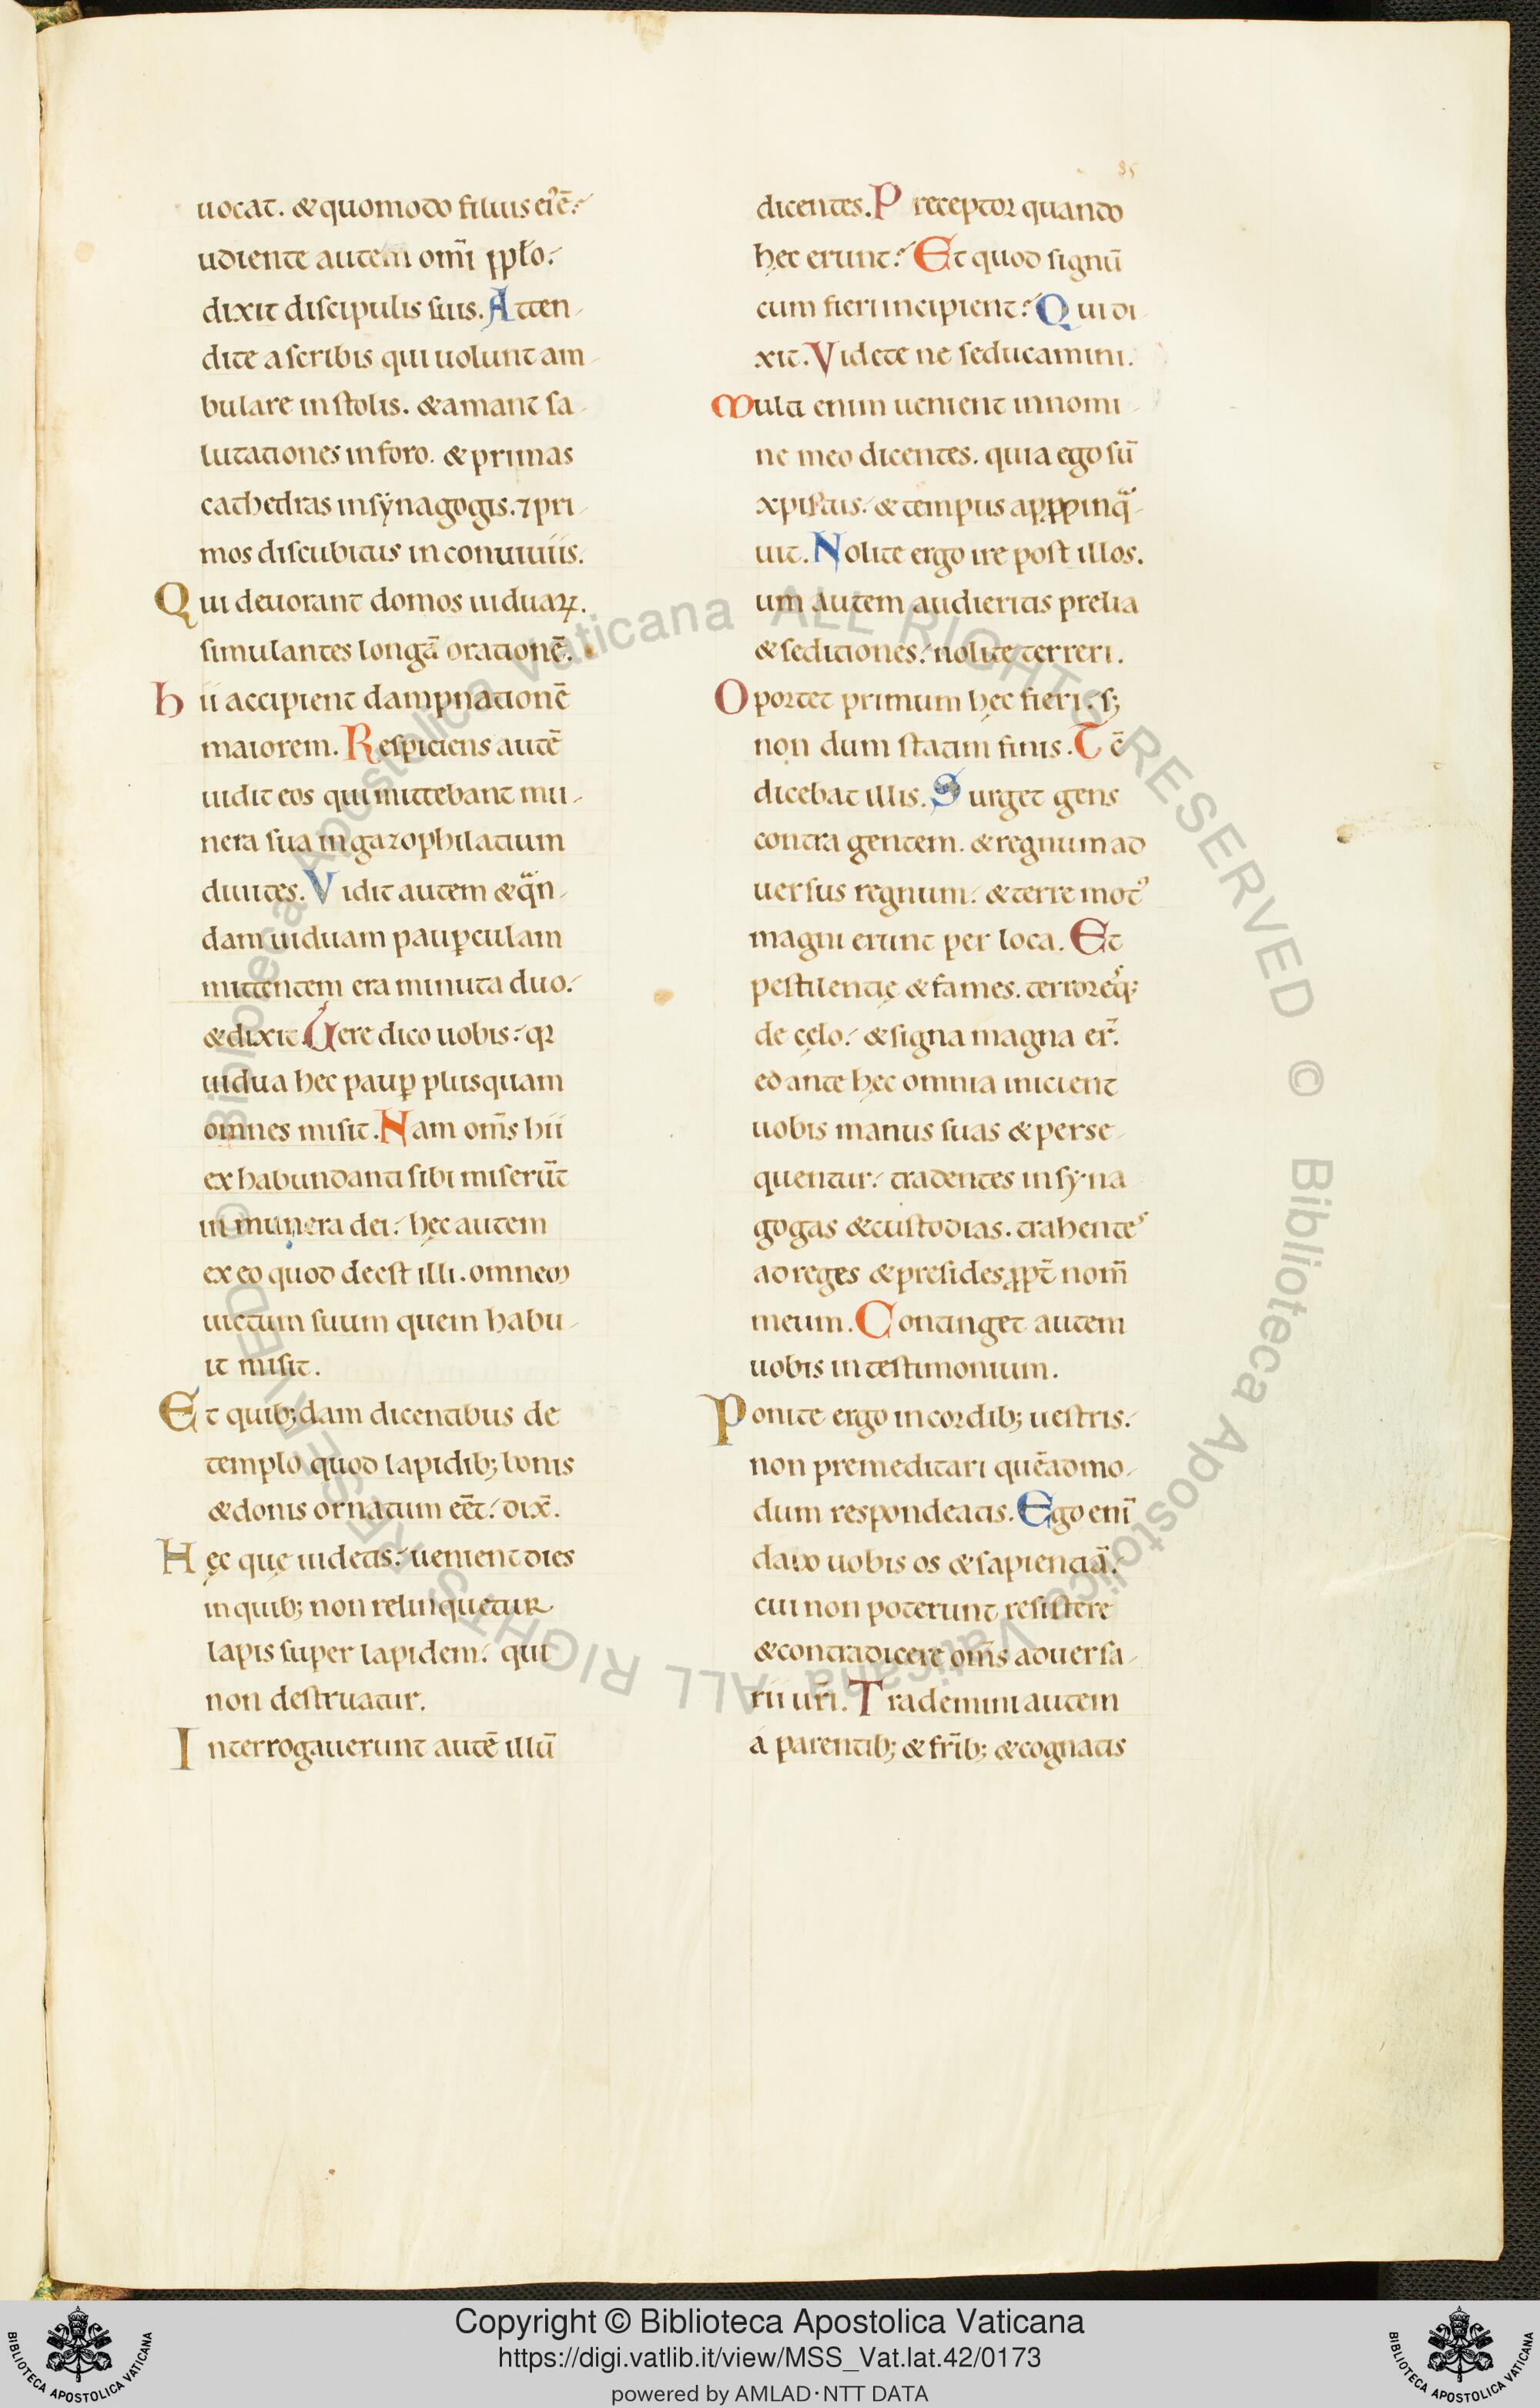 85
uocat. & quomodo filius ei᾽ ē?
udiente autem om̄i pp̄lo.
dixit discipulis suis. Atten-
dite a scribis qui uolunt am-
bulare in stolis. & amant sa-
lutationes in foro. & primas
cathedras in synagogis. ⁊ pri-
mos discubitus in conuiuiis.
Qui deuorant domos uiduaꝝ.
simulantes longā orationē.
hii accipient dampnationē
maiorem. Respiciens autē
uidit eos qui mittebant mu-
nera sua in gazophilatium
diuites. Vidit autem & qᵃn-
dam uiduam pauꝑculam
mittentem era minuta duo.
& dixit. Vere dico uobis: qꝛ
uidua hec pauꝑ plus quam
omnes misit. Nam om̄s hii
ex habundanti sibi miserūt
in munera dei. hęc autem
ex eo quod deest illi. omnem
uictum suum quem habu-
it misit.
Et quib;dam dicentibus de
templo quod lapidib; bonis
& donis ornatum eēt. dix̄.
Hęc quę uidetis. uenient dies
in quib; non relinquetur
lapis super lapidem. qui
non destruatur.
Interrogauerunt autē illū
dicentes. Preceptor quando
hęc erunt? Et quod signū
cum fieri incipient? Qui di-
xit. Videte ne seducamini.
Multi enim uenient in nomi-
ne meo dicentes. quia ego sū
xpistus. & tempus apꝓpinqᵃ-
uit. Nolite ergo ire post illos.
um autem audieritis prelia
& seditiones. nolite terreri.
Oportet primum hęc fieri. s;
non dum statim finis. Tē
dicebat illis. Surget gens
contra gentem. & regnum ad
uersus regnum. & terre motꝰ
magni erunt per loca. Et
pestilentię & fames. terroresq;
de cęlo. & signa magna er̄.
ed ante hęc omnia inicient
uobis manus suas & perse-
quentur. tradentes in syna
gogas & custodias. trahentes
ad reges & presides ꝓpt̄ nom̄
meum. Continget autem
uobis in testimonium.
Ponite ergo in cordib; uestris.
non premeditari quēadmo-
dum respondeatis. Ego eni̅
dabo uobis os & sapientiā.
cui non poterunt resistere
& contradicere om̄s aduersa-
rii ur̄i. Trademini autem
a parentib; & fr̄ib; & cognatis
© Biblioteca Apostolica Vaticana ALL RIGHTS RESERVED © Biblioteca Apostolica Vaticana ALL RIGHTS RESERVED
Copyright © Biblioteca Apostolica Vaticana
https://digi.vatlib.it/view/MSS_Vat.lat.42/0173
powered by AMLAD·NTT DATA
BIBLIOTECA APOSTOLICA VATICANA
BIBLIOTECA APOSTOLICA VATICANA